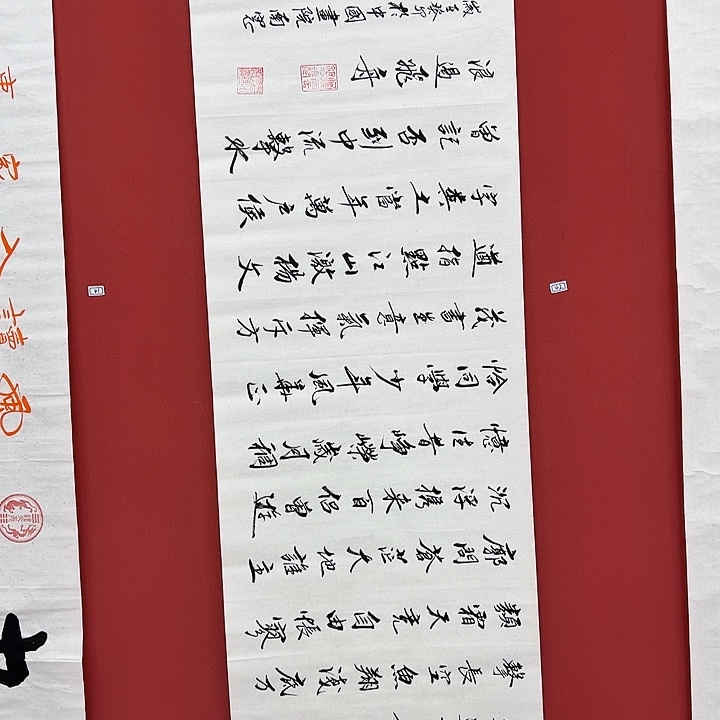 擊長空魚翔淺底万
類霜天競自由悵寥
廓問蒼茫大地誰主
沉浮携來百侶曾遊
憶往昔崢嶸歲月稠
恰同學少年風華正
茂書生意氣揮斥方
遒指點江山激揚文
字糞土當年萬戶侯
曾記否到中流擊水
浪遏飛舟
癸卯於中國畫院南窓
家入讀